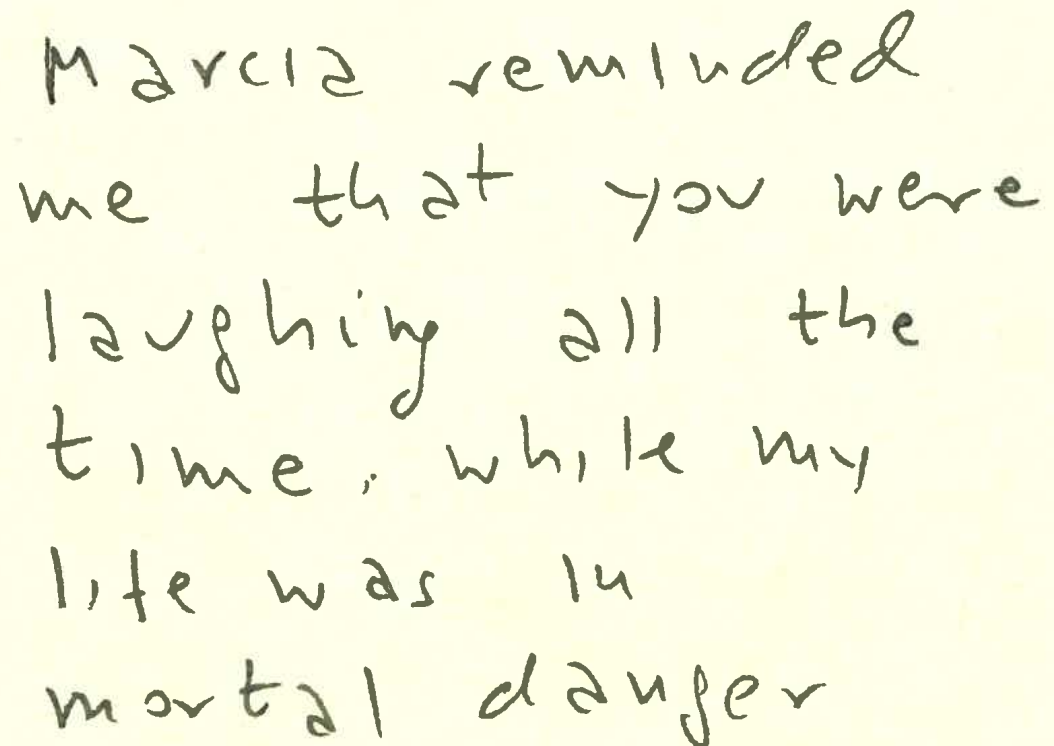 Marcia reminded
me that you were
laughing all the
time, while my
life was in
mortal danger